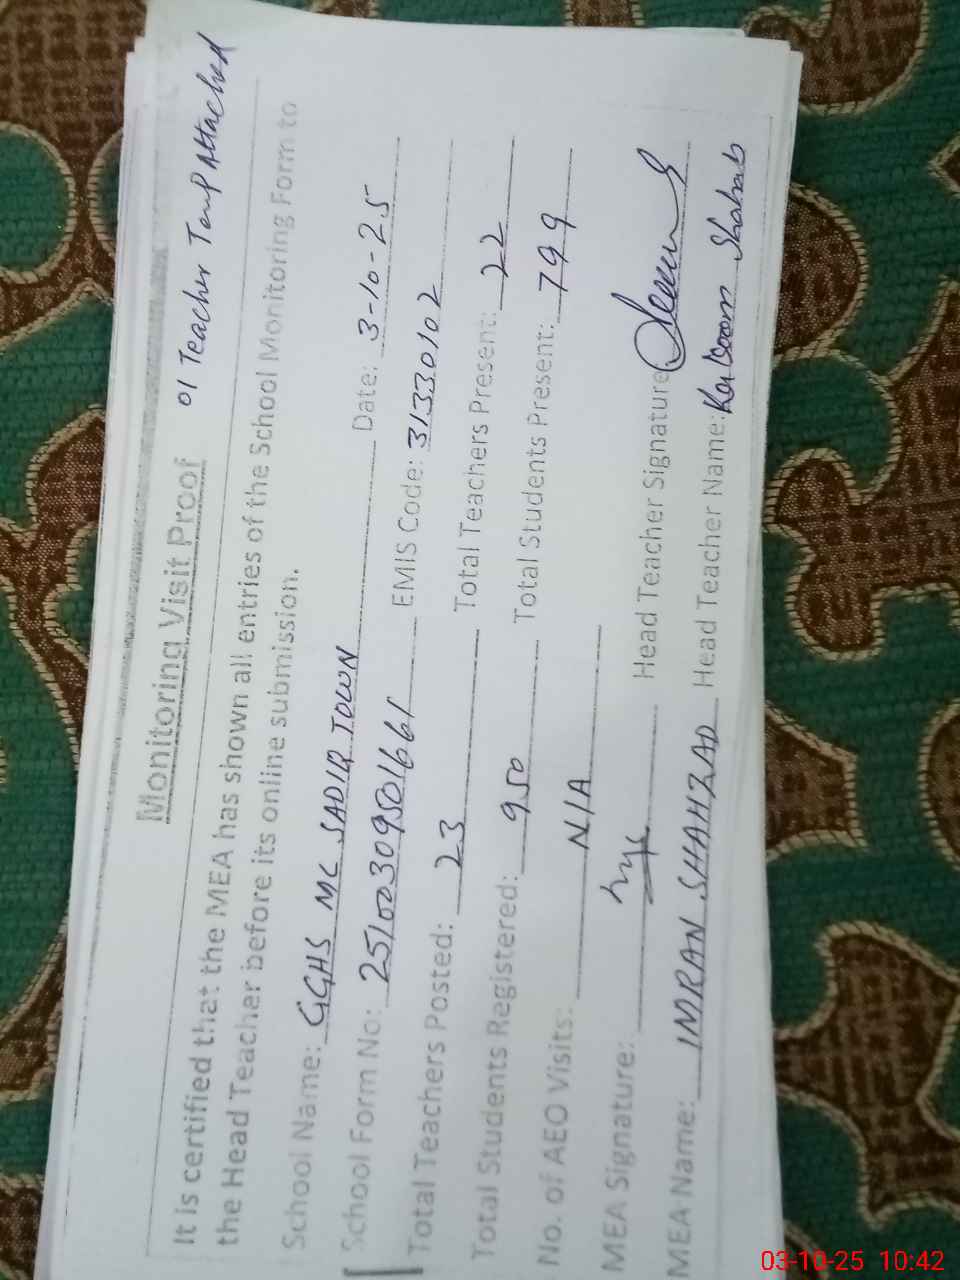 01 Teacher Temp Attached
Monitoring Visit Proof
It is certified that the MEA has shown all entries of the School Monitoring Form to
the Head Teacher before its online submission.
School Name: GGHS MC SADIR TOWN Date: 3-10-25
School Form No: 251003095016661 EMIS Code: 31330102
Total Teachers Posted: 23 Total Teachers Present: 22
Total Students Registered: 950 Total Students Present: 799
No. of AEO Visits: N/A
MEA Signature: Head Teacher Signature
MEA Name: IMRAN SHAHZAD Head Teacher Name: Kalsoom Shahab
03-10-25 10:42